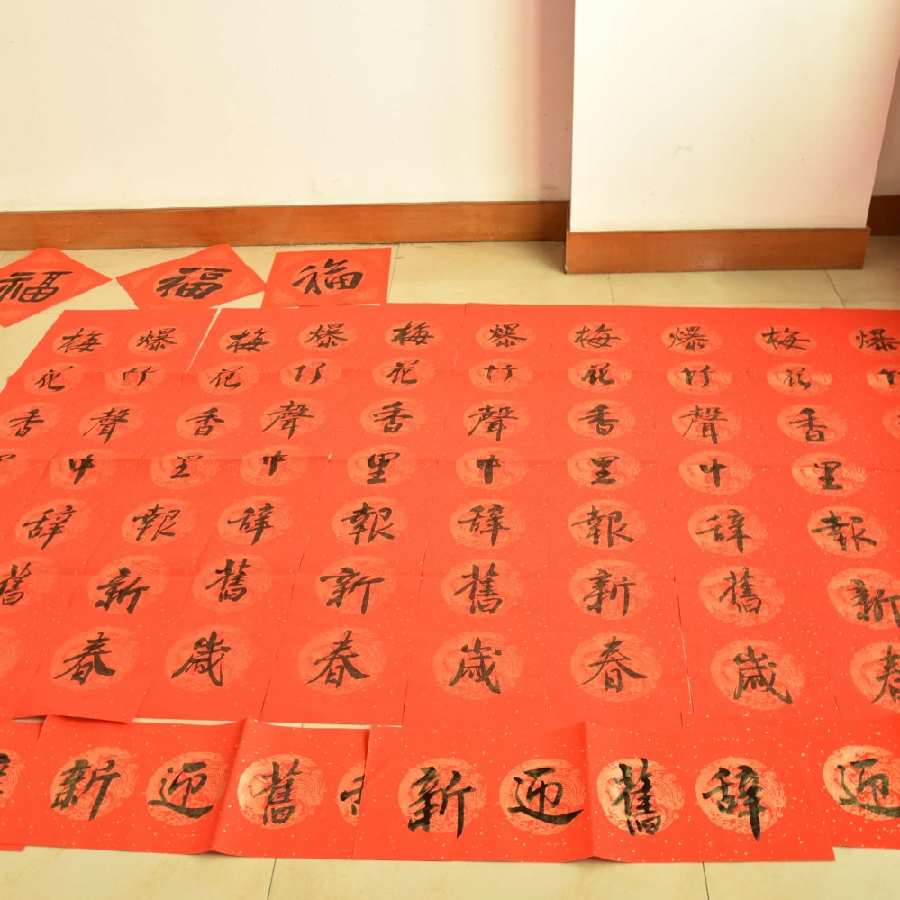 福
福
福
爆竹
梅花香里報新春
爆竹聲中辭舊歲
梅花香里報新春
爆竹聲中辭舊歲
梅花香里報新春
爆竹聲中辭舊歲
梅花香里報新春
爆竹聲中辭舊
梅花香里
迎
辭舊迎新
舊迎新